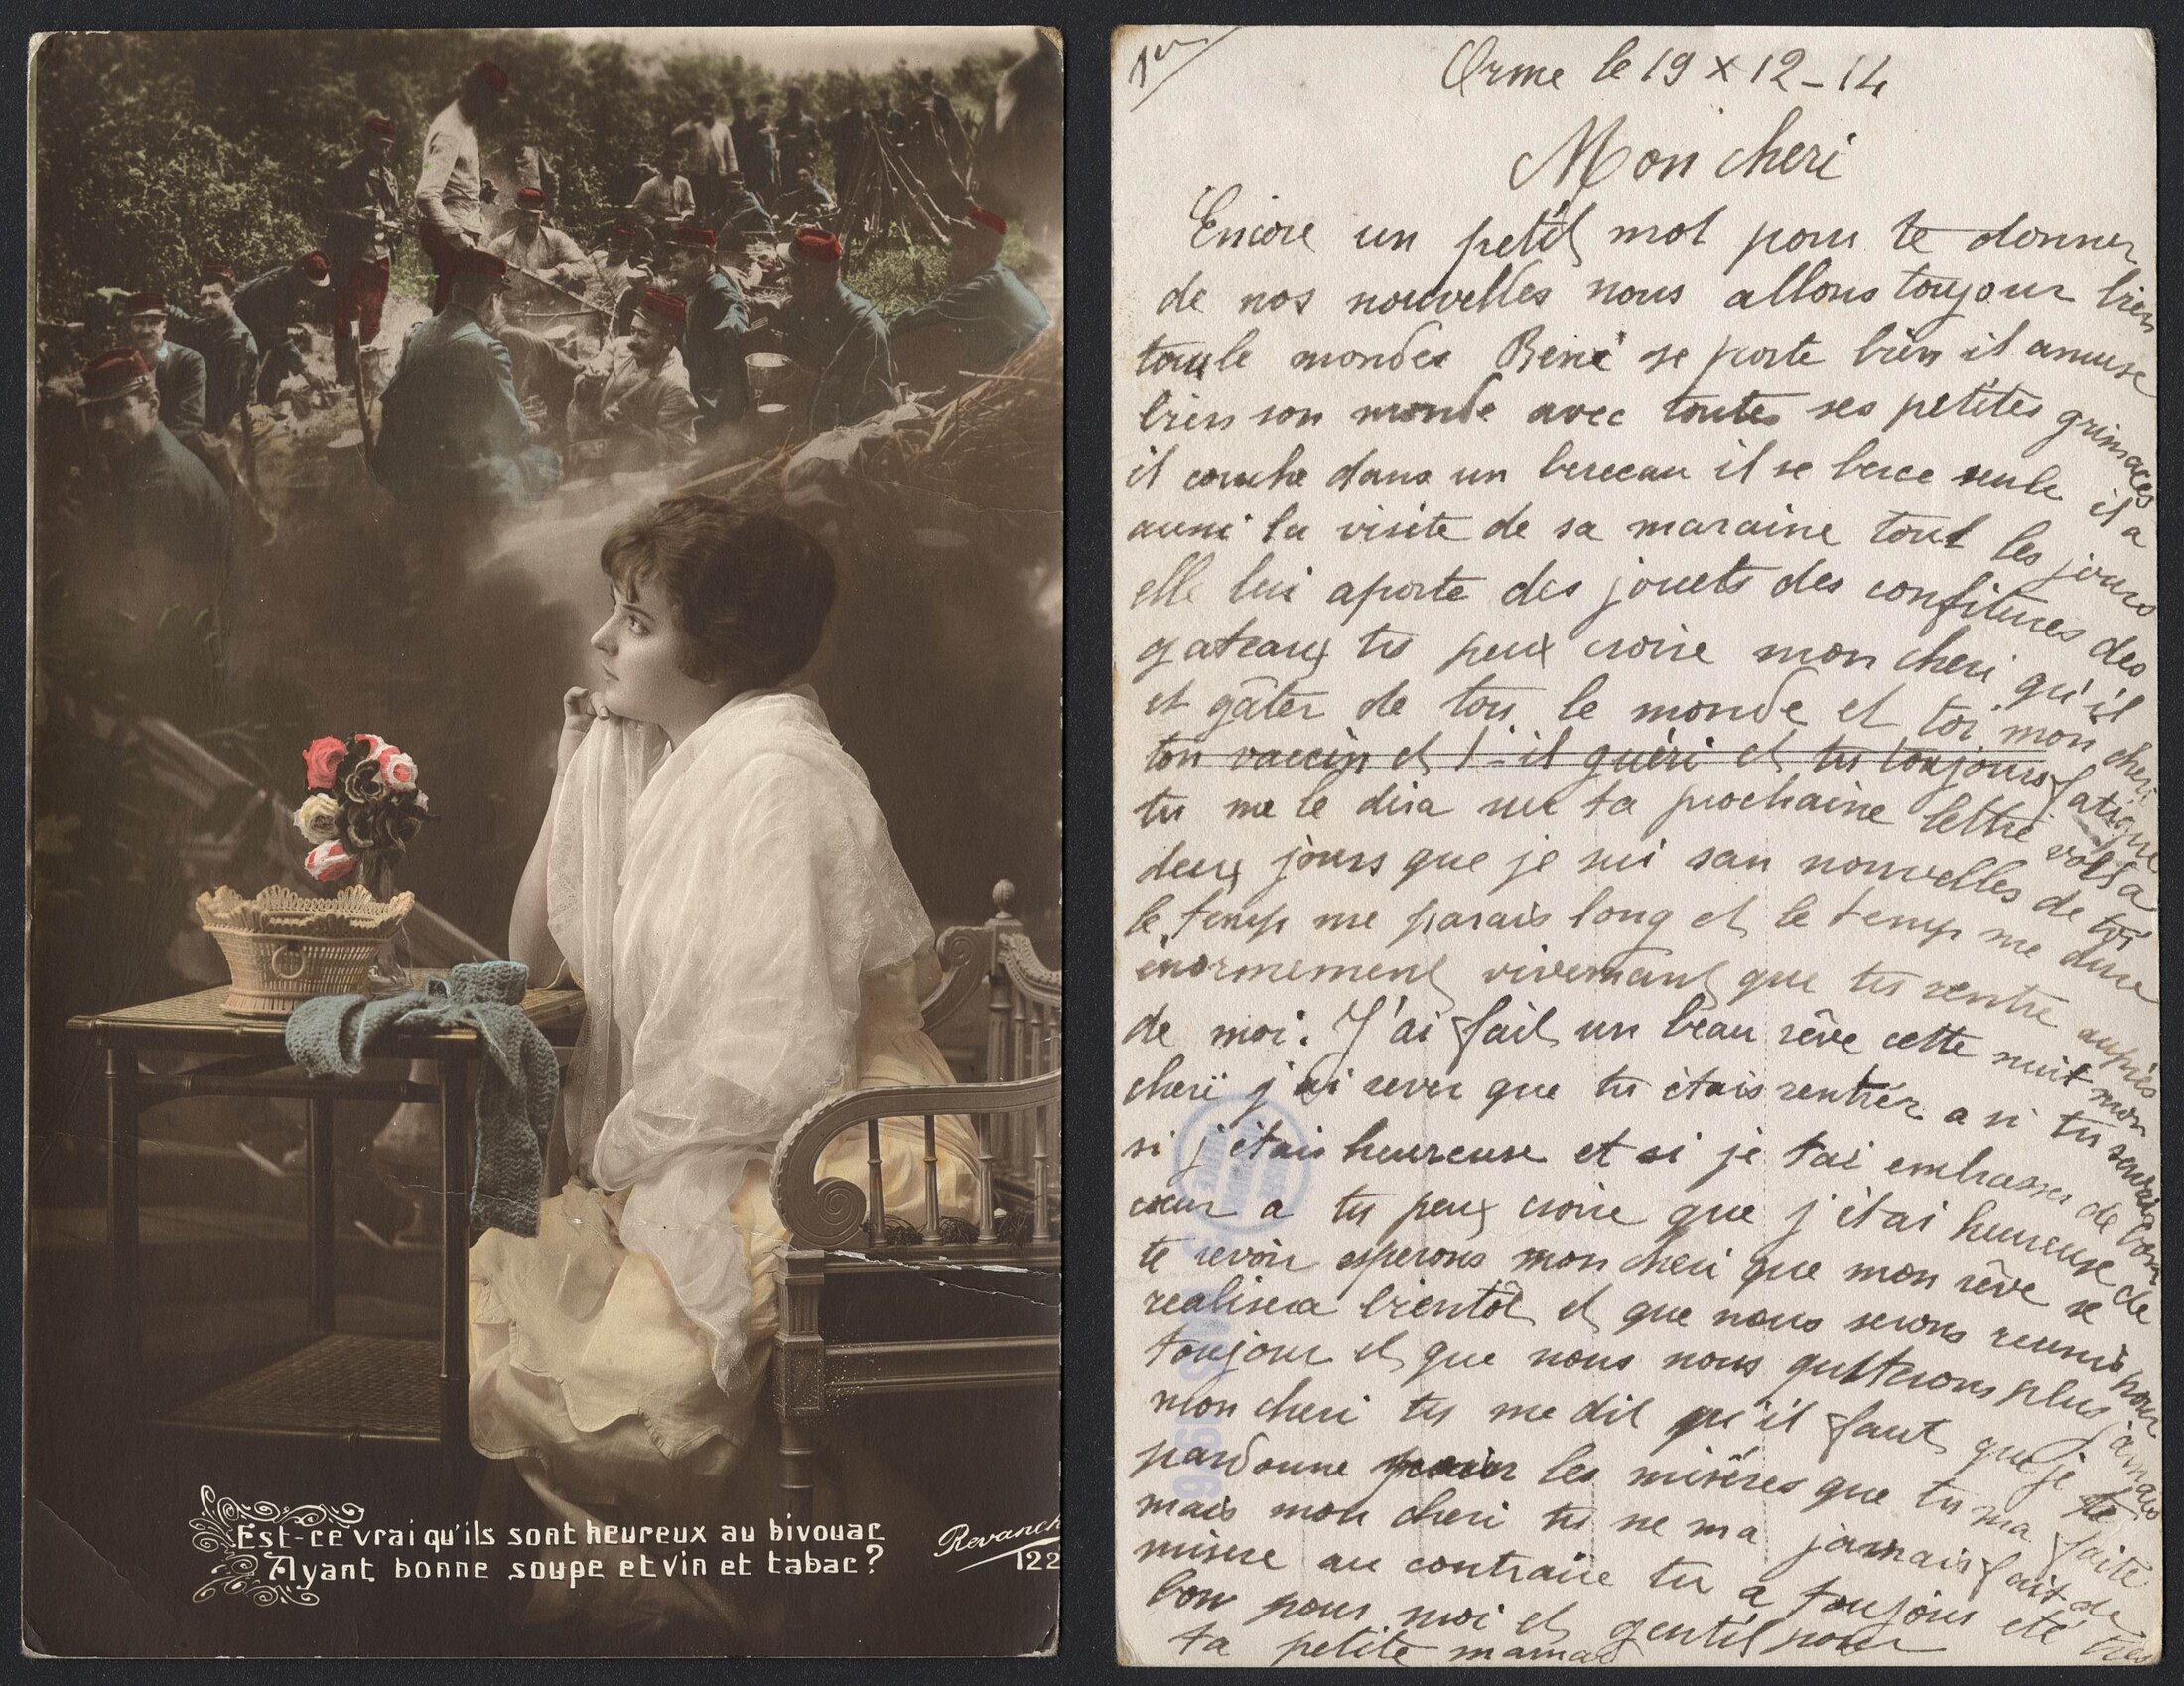 Est-ce vrai qu'ils sont heureux au bivouac
Ayant bonne soupe et vin et tabac?
Revanch
122
1er
Orme le 19 x 12 - 14
Mon cheri
Encore un petit mot pour te donner
de nos nouvelles nous allons toujour bien
tout le mondes René se porte bien il amuse
bien son monde avec toutes ses petites grimaces
il couche dans un berceau il se berce seule il a
aussi la visite de sa maraine tout les jours
elle lui aporte des jouets des confitures des
gateaux tu peux croire mon cheri qu'il
et gâter de tou le monde et toi mon cheri
ton vaccin et t-il guéri et tu toujours fatigué
tu me le dira sur ta prochaine lettre voilla
deux jours que je sui san nouvelles de toi
le temp me parais long et le temp me dure
énormement vivemant que tu rentre auprès
de moi. J'ai fait un beau rêve cette nuit mon
cheri j'ai rever que tu étais rentrér a si tu savais
si j'étais heureuse et si je t'ai embrasser de bon
cœur a tu peux croire que j'étai heureuse de
te revoir esperons mon cheri que mon rêve se
realisera bientôt et que nous serons reunis pour
toujour et que nous nous quitterons plus jamais
mon cheri tu me dit qu'il faut que je te
pardonne les miséres que tu ma faite
mais mon cheri tu ne ma jamais fait de
misere au contraire tu a toujours eté très
bon pour moi et gentil pour
ta petite maman